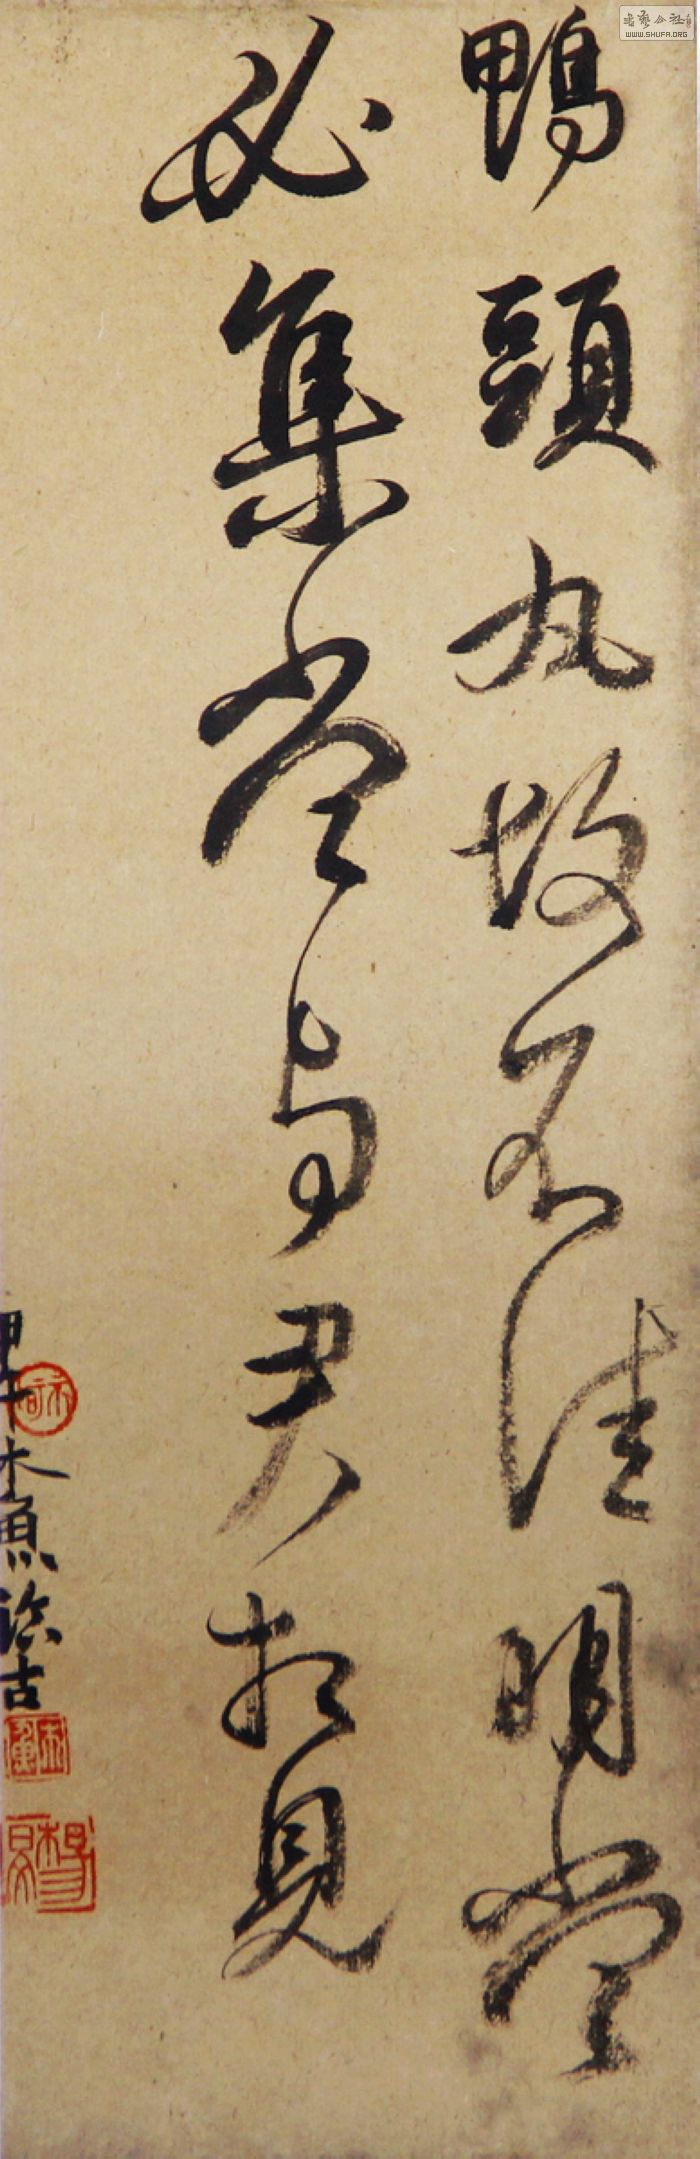 鴨頭丸故不佳明當
必集當與君相見
甲午木魚臨古
書藝公社
WWW.SHUFA.ORG